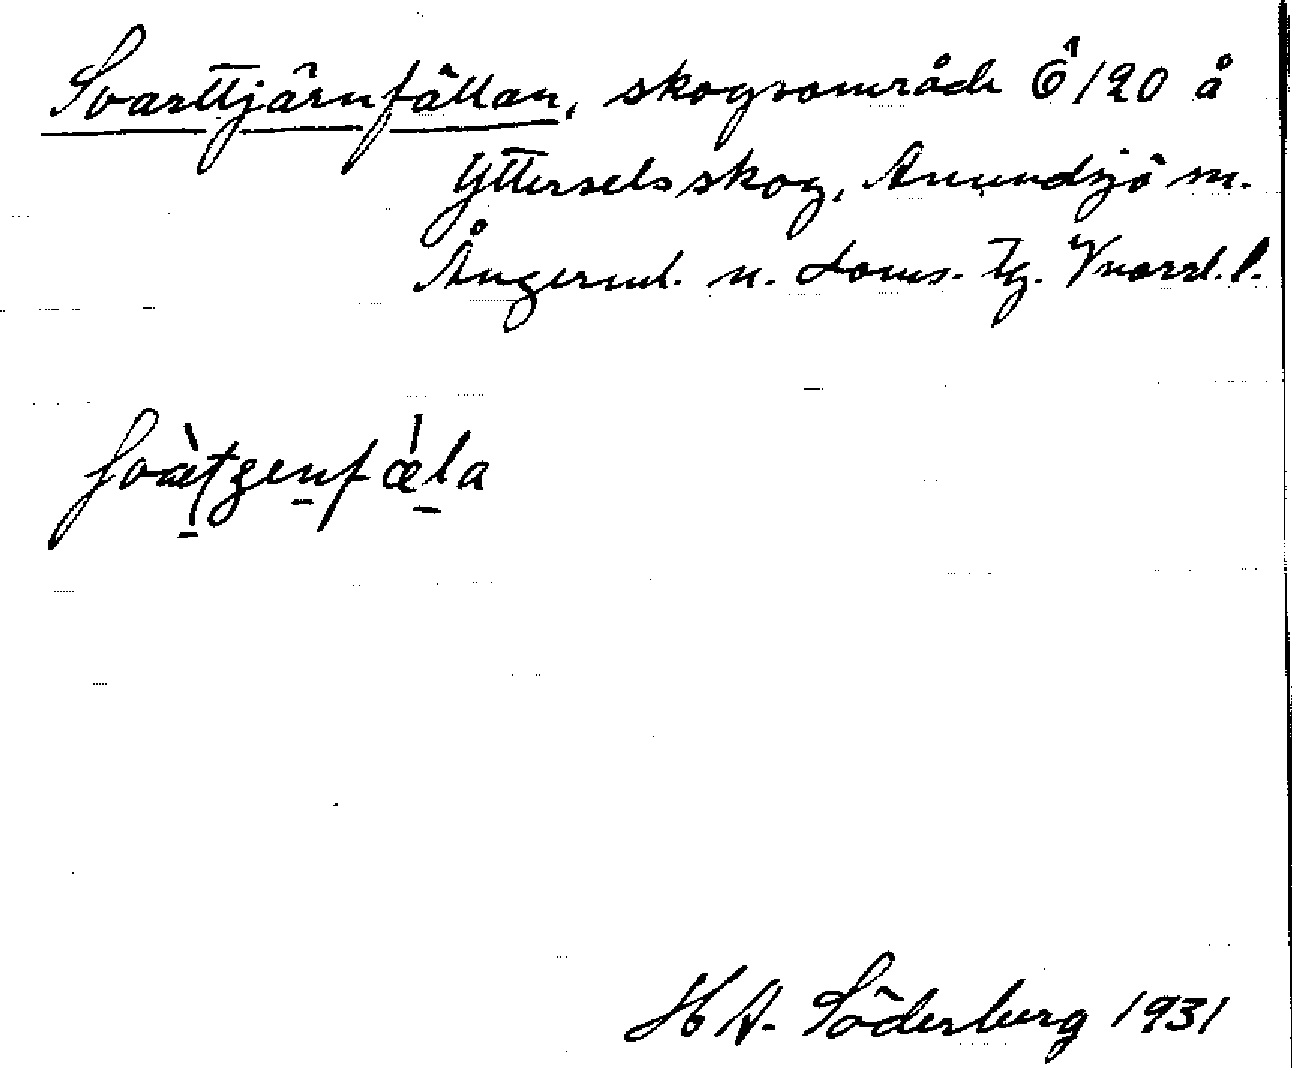 Svarttjärnfällan, skogsområde Ö/20 å
Ytterselsskog, Anundsjö sn.
Ångerml. n. doms. tg. Vnorrl. l.
svàtʒenfæ̀la
H A. Söderberg 1931